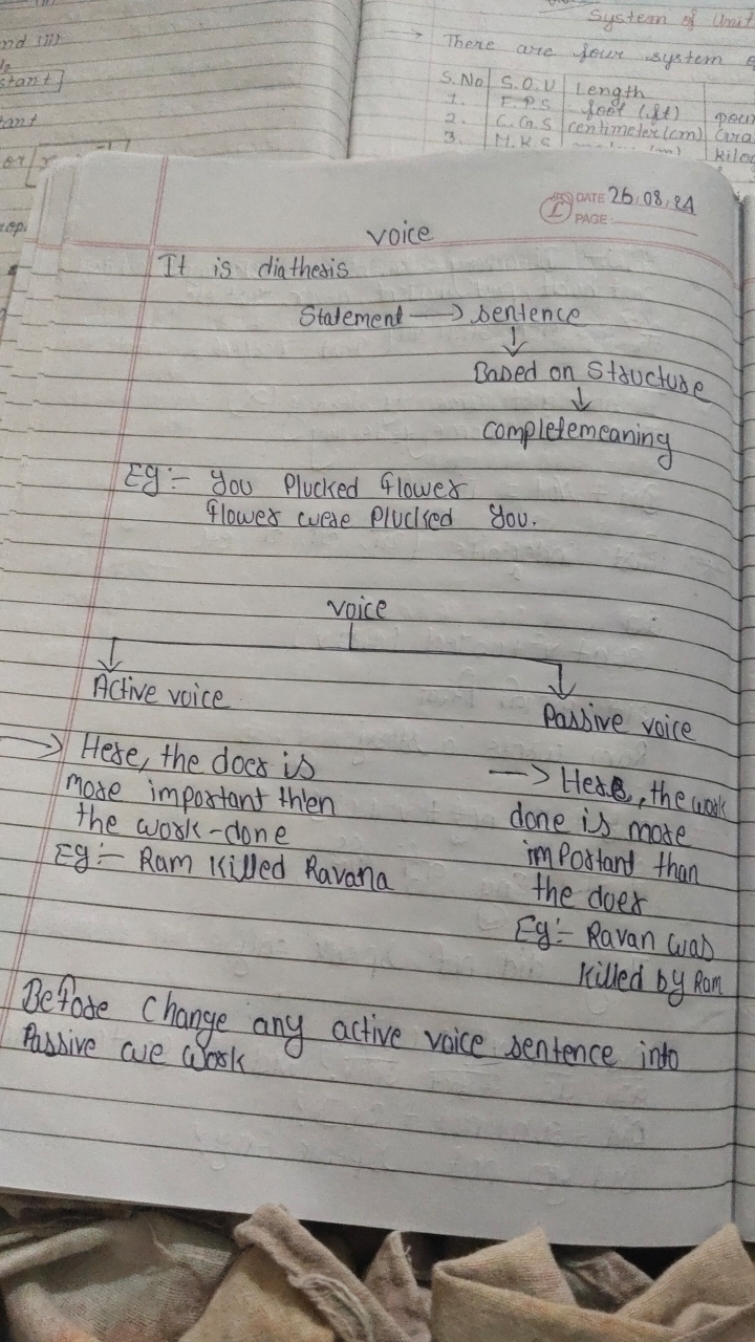 nd (ii)
stant]
tant
or
rep.
System of Unit
→ There are four system
S.No S.O.U Length
1. F.P.S foot (ft) poun
2. C.G.S centimeter(cm) Gra
3. M.K.S (m) kilog
DATE 26.08.24
PAGE
voice
It is diathesis
Statement → sentence
↓
Based on Structure
↓
completemeaning
Eg:- You Plucked flower
flower were Plucked You.
voice
Active voice
Passive voice
→ Here, the doer is
more important then
the work-done
Eg:- Ram Killed Ravana
→ Here, the work
done is more
important than
the doer
Eg:- Ravan was
killed by Ram
Before change any active voice sentence into
Passive we work